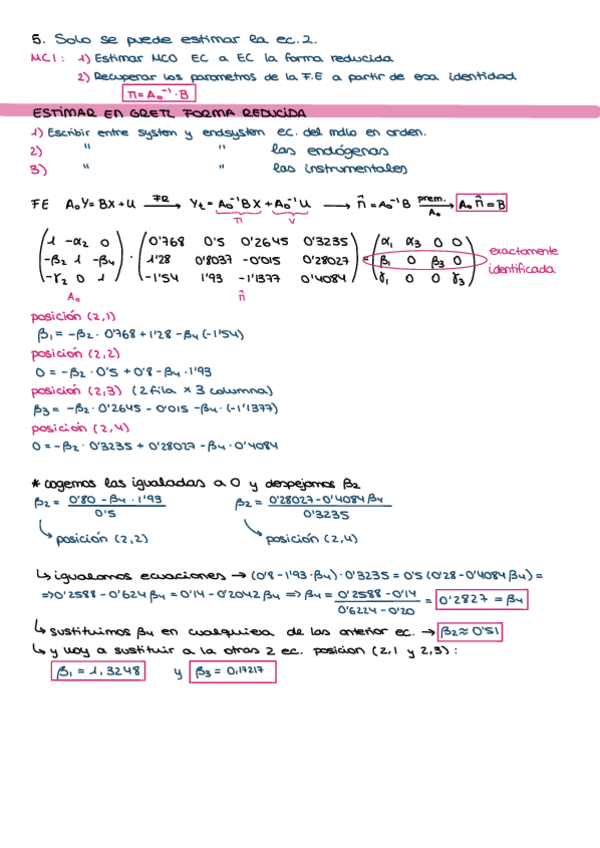 5. Solo se puede estimar la ec. 2.
MCI: 1) Estimar MCO EC a EC la forma reducida
2) Recuperar los parametros de la F.E a partir de esa identidad
Π = A₀⁻¹ · B
ESTIMAR EN GRETL FORMA REDUCIDA
1) Escribir entre system y endsystem ec. del mdlo en orden.
2) " " las endógenas
3) " " las instrumentales
FE A₀Y = BX + U →FR Yt = A₀⁻¹BX + A₀⁻¹U → Π̂ = A₀⁻¹B →prem. A₀ A₀ Π̂ = B
Π V
(1 -α₂ 0) (0'768 0'5 0'2645 0'3235) (α₁ α₃ 0 0)
(-β₂ 1 -β₄) · (1'28 0'8037 -0'015 0'28027) = (β₁ 0 β₃ 0) exactamente identificada
(-γ₂ 0 1) (-1'54 1'93 -1'1377 0'4084) (γ₁ 0 0 γ₃)
A₀ Π̂
posición (2,1)
β₁ = -β₂ · 0'768 + 1'28 - β₄ (-1'54)
posición (2,2)
0 = -β₂ · 0'5 + 0'8 - β₄ · 1'93
posición (2,3) (2 fila × 3 columna)
β₃ = -β₂ · 0'2645 - 0'015 - β₄ · (-1'1377)
posición (2,4)
0 = -β₂ · 0'3235 + 0'28027 - β₄ · 0'4084
* cogemos las igualadas a 0 y despejamos β₂
β₂ = 0'80 - β₄ · 1'93 / 0'5 β₂ = 0'28027 - 0'4084 β₄ / 0'3235
↳ posición (2,2) ↳ posición (2,4)
↳ igualamos ecuaciones → (0'8 - 1'93 · β₄) · 0'3235 = 0'5 (0'28 - 0'4084 β₄) =
=> 0'2588 - 0'624 β₄ = 0'14 - 0'2042 β₄ => β₄ = 0'2588 - 0'14 / 0'6224 - 0'20 = 0'2827 = β₄
↳ sustituimos β₄ en cualquiera de las anterior ec. → β₂ ≈ 0'51
↳ y voy a sustituir a la otras 2 ec. posicion (2,1 y 2,3):
β₁ = 1,3248 y β₃ = 0,17217